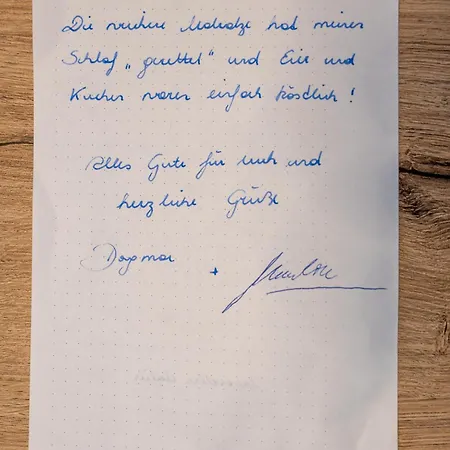 Die weichere Matratze hat meinen
Schlaf „gerettet" und Eier und
Kuchen waren einfach köstlich!
Alles Gute für euch und
herzliche Grüße
Dagmar +